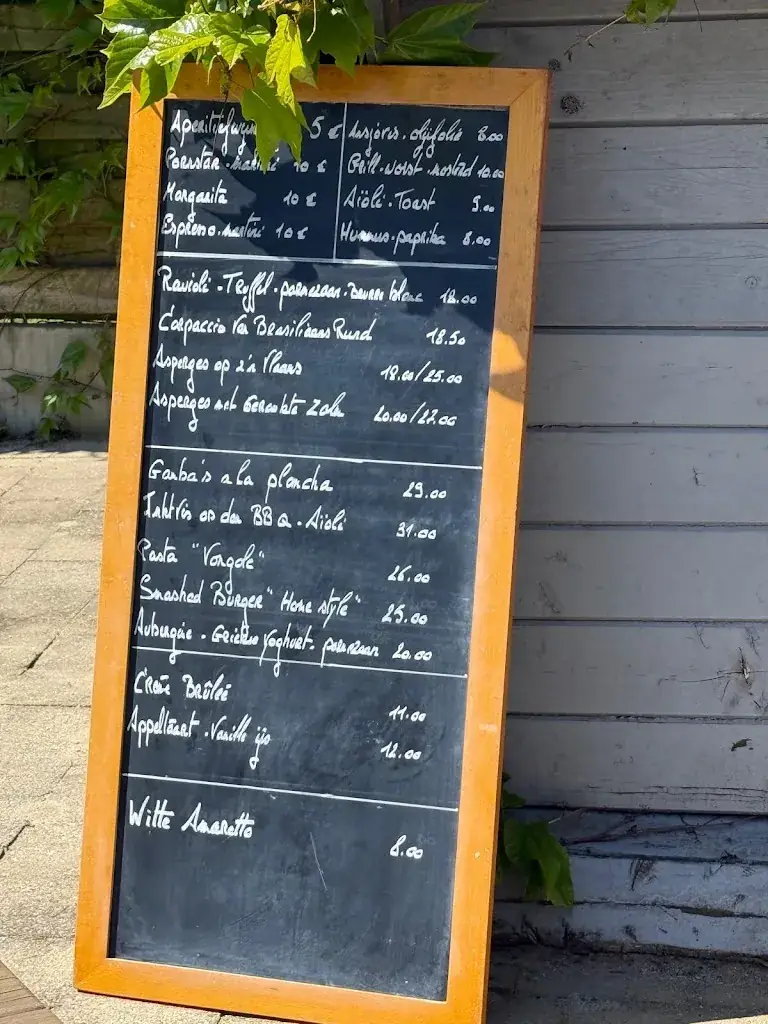 5 €
Pornstar. martini 10 €
Margarita 10 €
Espresso. martini 10 €
Ansjovis. olijfolie 8.00
Grill. worst. mosterd 10.00
Aïoli. Toast 5.00
Hummus. paprika 8.00
Ravioli - Truffel. parmezaan. Beurre blanc 18.00
Carpaccio van Brasiliaans Rund 18.50
Asperges op z'n Vlaams 18.00/25.00
Asperges met Gerookte Zalm 20.00/27.00
Gamba's a la plancha 29.00
Inktvis op den BBQ. Aïoli 31.00
Pasta "Vongole" 26.00
Smashed Burger "Home style" 25.00
Aubergine. Griekse Yoghurt. parmezaan 20.00
Crème Brûlée 11.00
Appeltaart. Vanille ijs 12.00
Witte Amaretto 8.00